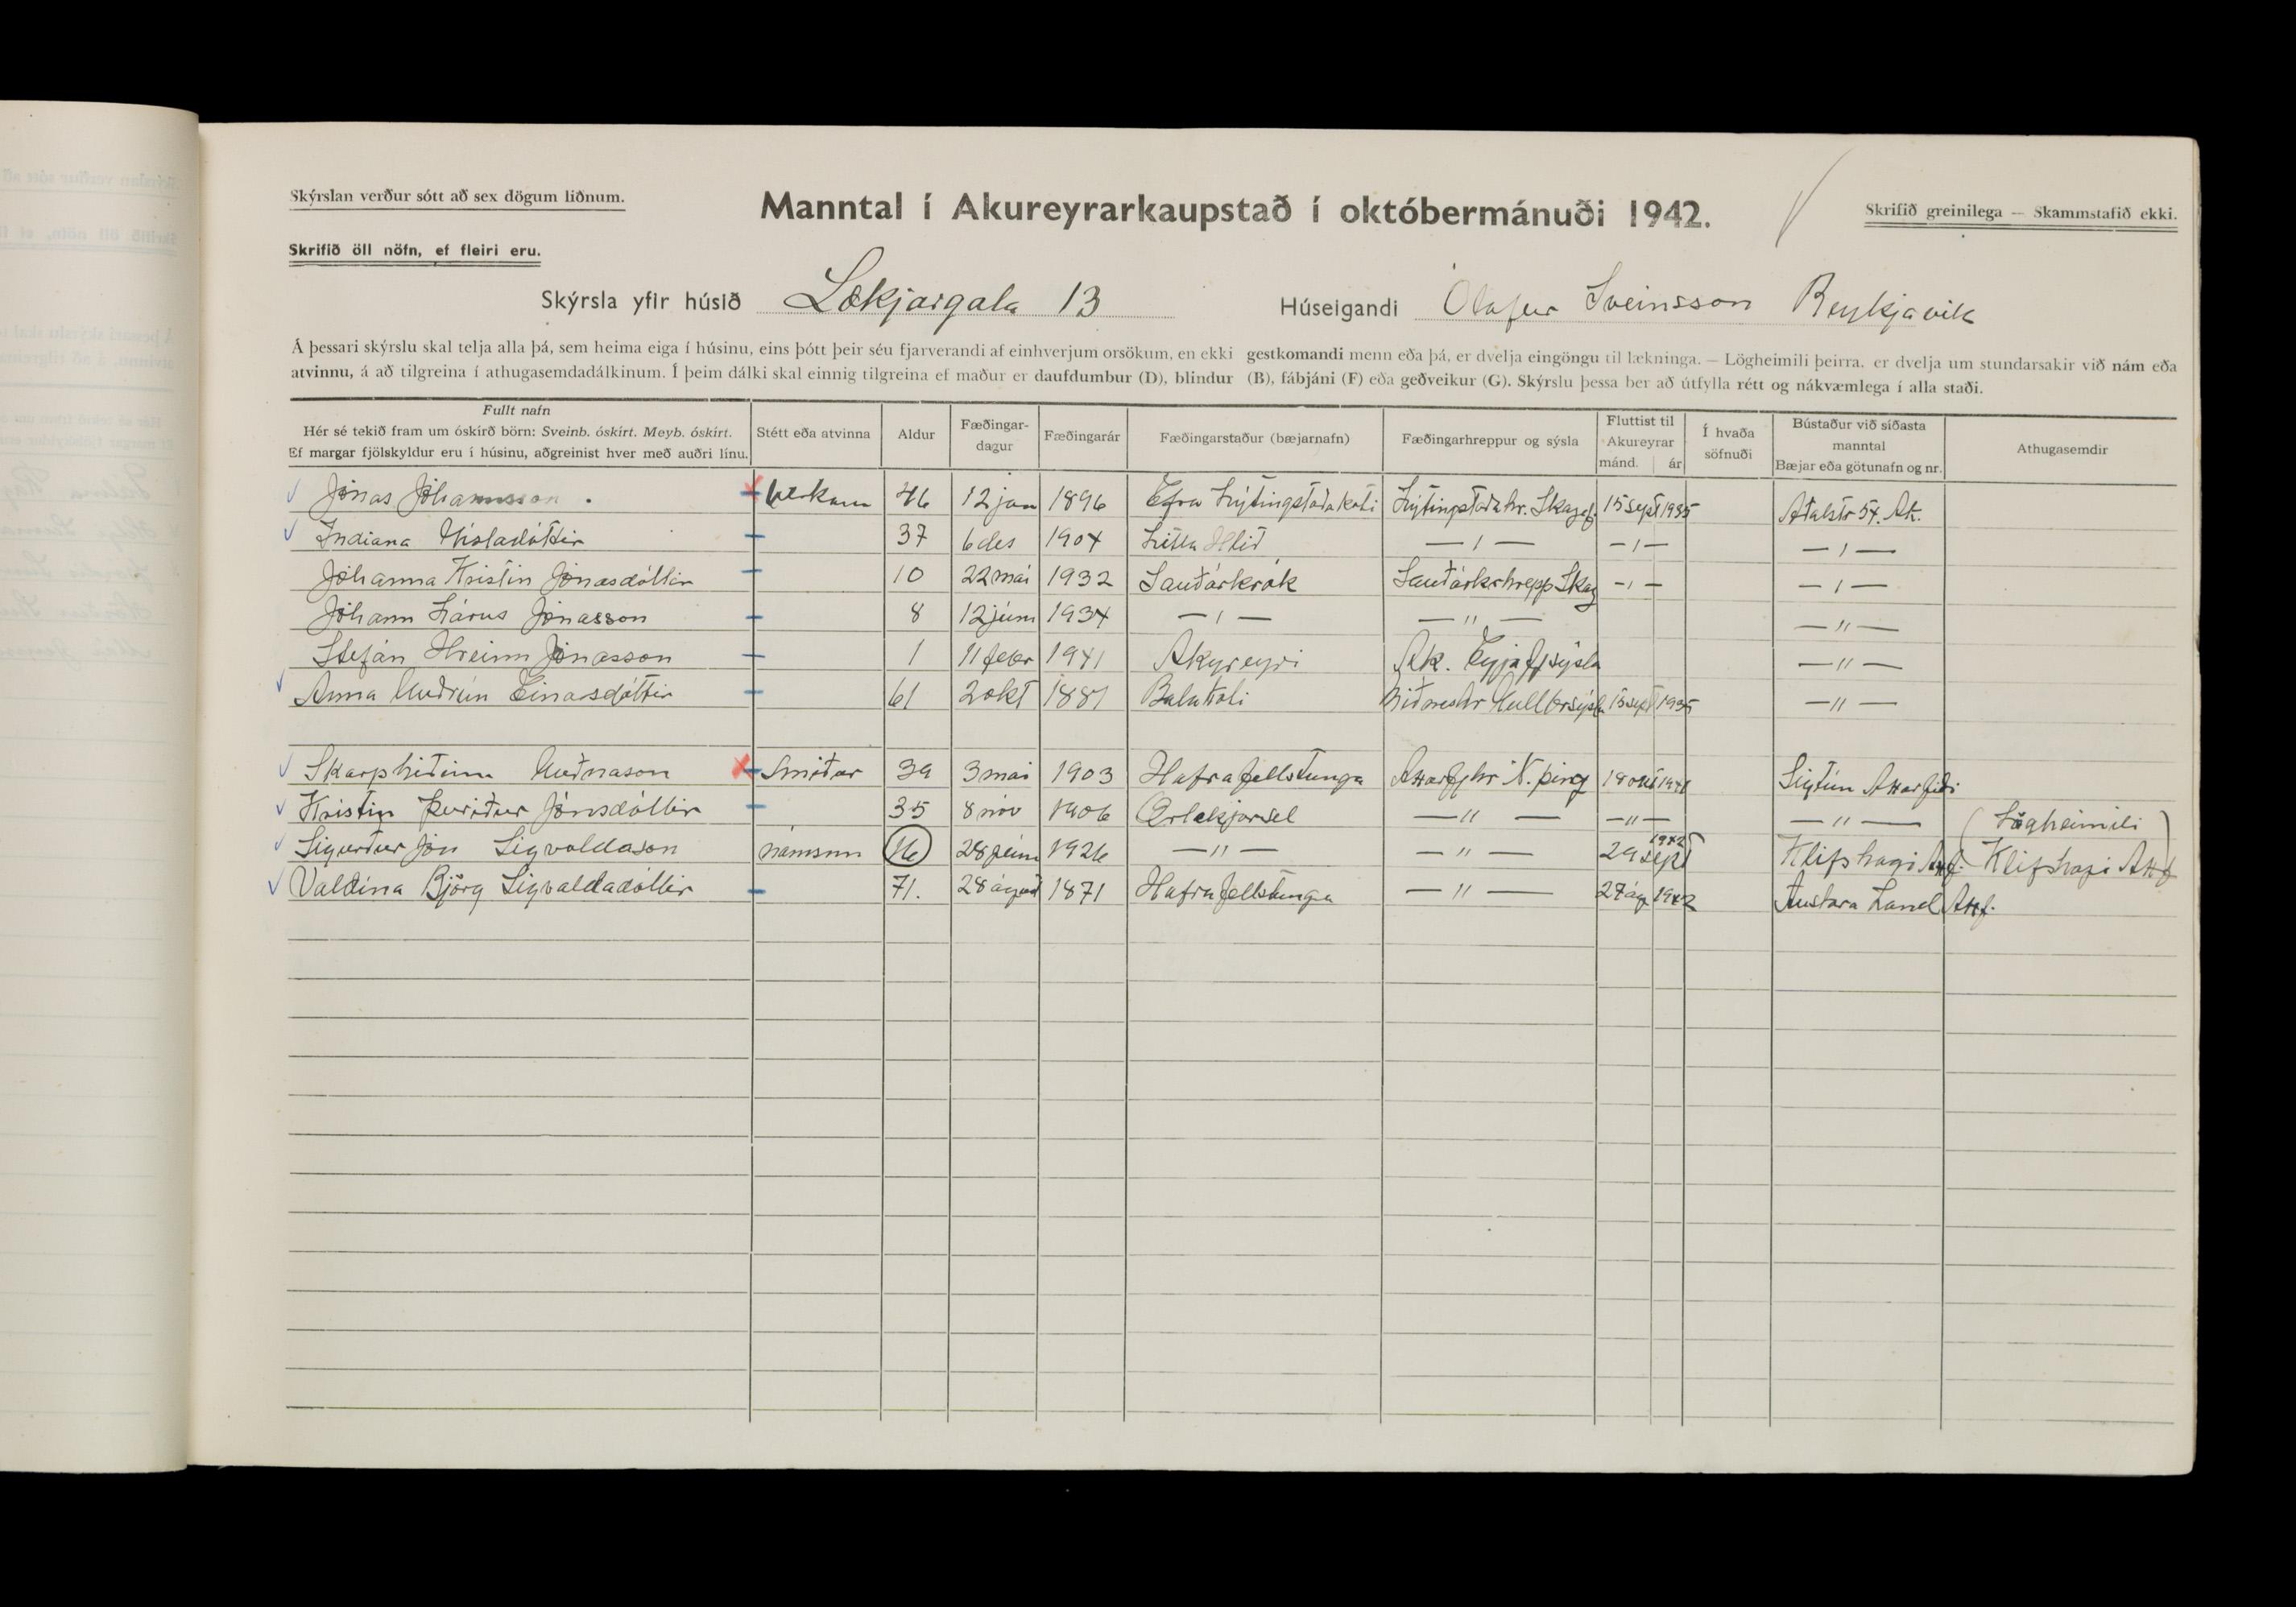 Skýrslan verður sótt að sex dögum liðnum.
Manntal í Akureyrarkaupstað í októbermánuði 1942.
Skrifið greinilega — Skammstafið ekki.
Skrifið öll nöfn, ef fleiri eru.
Skýrsla yfir húsið Lækjargata 13 Húseigandi Ólafur Sveinsson Reykjavik
Á þessari skýrslu skal telja alla þá, sem heima eiga í húsinu, eins þótt þeir séu fjarverandi af einhverjum orsökum, en ekki gestkomandi menn eða þá, er dvelja eingöngu til lækninga. — Lögheimili þeirra, er dvelja um stundarsakir við nám eða
atvinnu, á að tilgreina í athugasemdadálkinum. Í þeim dálki skal einnig tilgreina ef maður er daufdumbur (D), blindur (B), fábjáni (F) eða geðveikur (G). Skýrslu þessa ber að útfylla rétt og nákvæmlega í alla staði.
Fullt nafn
Hér sé tekið fram um óskírð börn: Sveinb. óskírt. Meyb. óskírt.
Ef margar fjölskyldur eru í húsinu, aðgreinist hver með auðri línu.
Stétt eða atvinna
Aldur
Fæðingar-
dagur
Fæðingarár
Fæðingarstaður (bæjarnafn)
Fæðingarhreppur og sýsla
Fluttist til
Akureyrar
mánd. ár
Í hvaða
söfnuði
Bústaður við síðasta
manntal
Bæjar eða götunafn og nr.
Athugasemdir
Jónas Jóhannsson . Verkam 46 12 jan 1896 Efra Lýtingstaðakoti Lýtingstaðahr. Skagaf 15 sept 1935 Aðalstr 54. Ak.
Indiana Gísladóttir 37 6 des 1904 Litla Hlið — ı — — ı — — ı —
Jóhanna Kristin Jónasdóttir 10 22 mái 1932 Sauðárkrók Sauðárkrhrepp Skag — ı — — ı —
Jóhann Lárus Jónasson 8 12 júni 1934 — ı — — " — — " —
Stefán Hreinn Jónasson 1 11 febr 1941 Akureyri Ak. Eyjafjsýsla — " —
Anna Guðrún Einarsdóttir 61 2 okt 1881 Bala koti Miðneshr Gullbrsýsla 15 sept 1935 — " —
Skarphéðinn Guðnason Smiður 39 3 mai 1903 Hafrafellstunga Axarfjhr N. þing 18 okt 1941 Sigtún Axarfirði
Kristin Þuriður Jónsdóttir 35 8 nóv 1906 Ærlækjarsel — " — — " — — " — (Lögheimili
Sigurður Jón Sigvaldason námsm 16 28 júni 1926 — " — — " — 29 sept 1942 Klifshagi Axf. Klifshagi Axf)
Valdína Björg Sigvaldadóttir 71. 28 águst 1871 Hafrafellstunga — " — 27 ág 1942 Austara Land Axf.